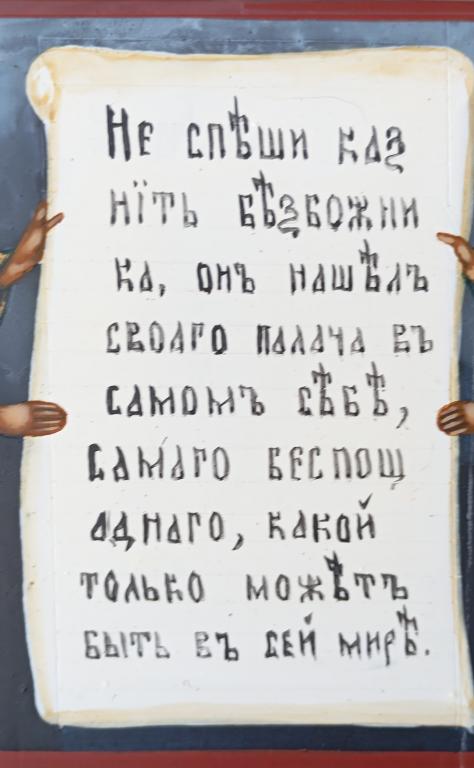 Не спѣши каз
нїть бѣзбожни
ка, онъ нашѣлъ
своаго палача въ
самомъ сѣбѣ,
самаго беспощ
аднаго, какой
только можѣтъ
быть въ сей мирѣ.